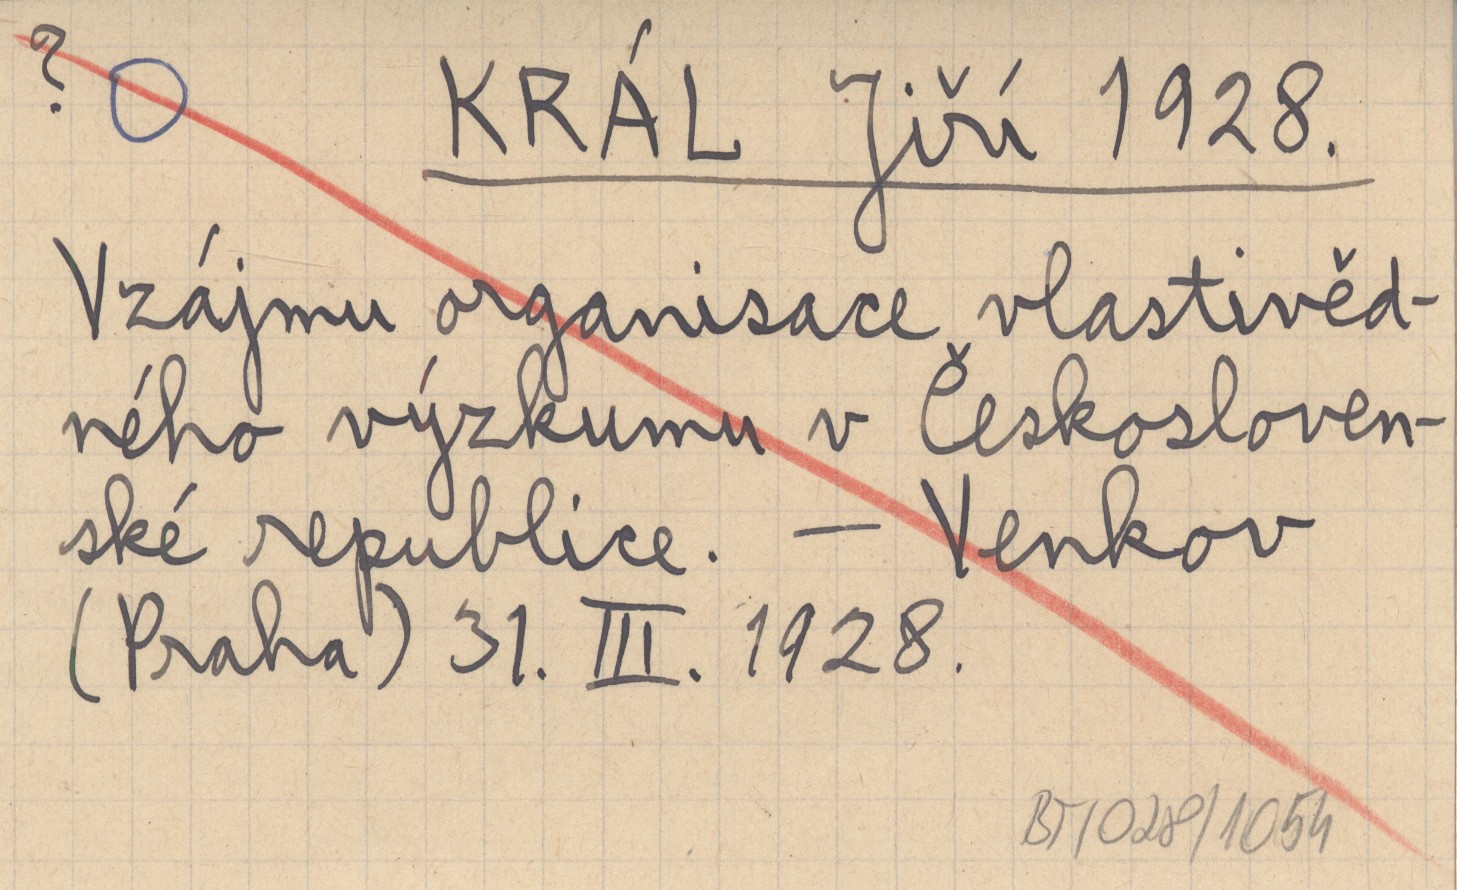 ?
KRÁL Jiří 1928.
Vzájmu organisace vlastivěd-
ného výzkumu v Českosloven-
ské republice. — Venkov
(Praha) 31. III. 1928.
BT/028/1054